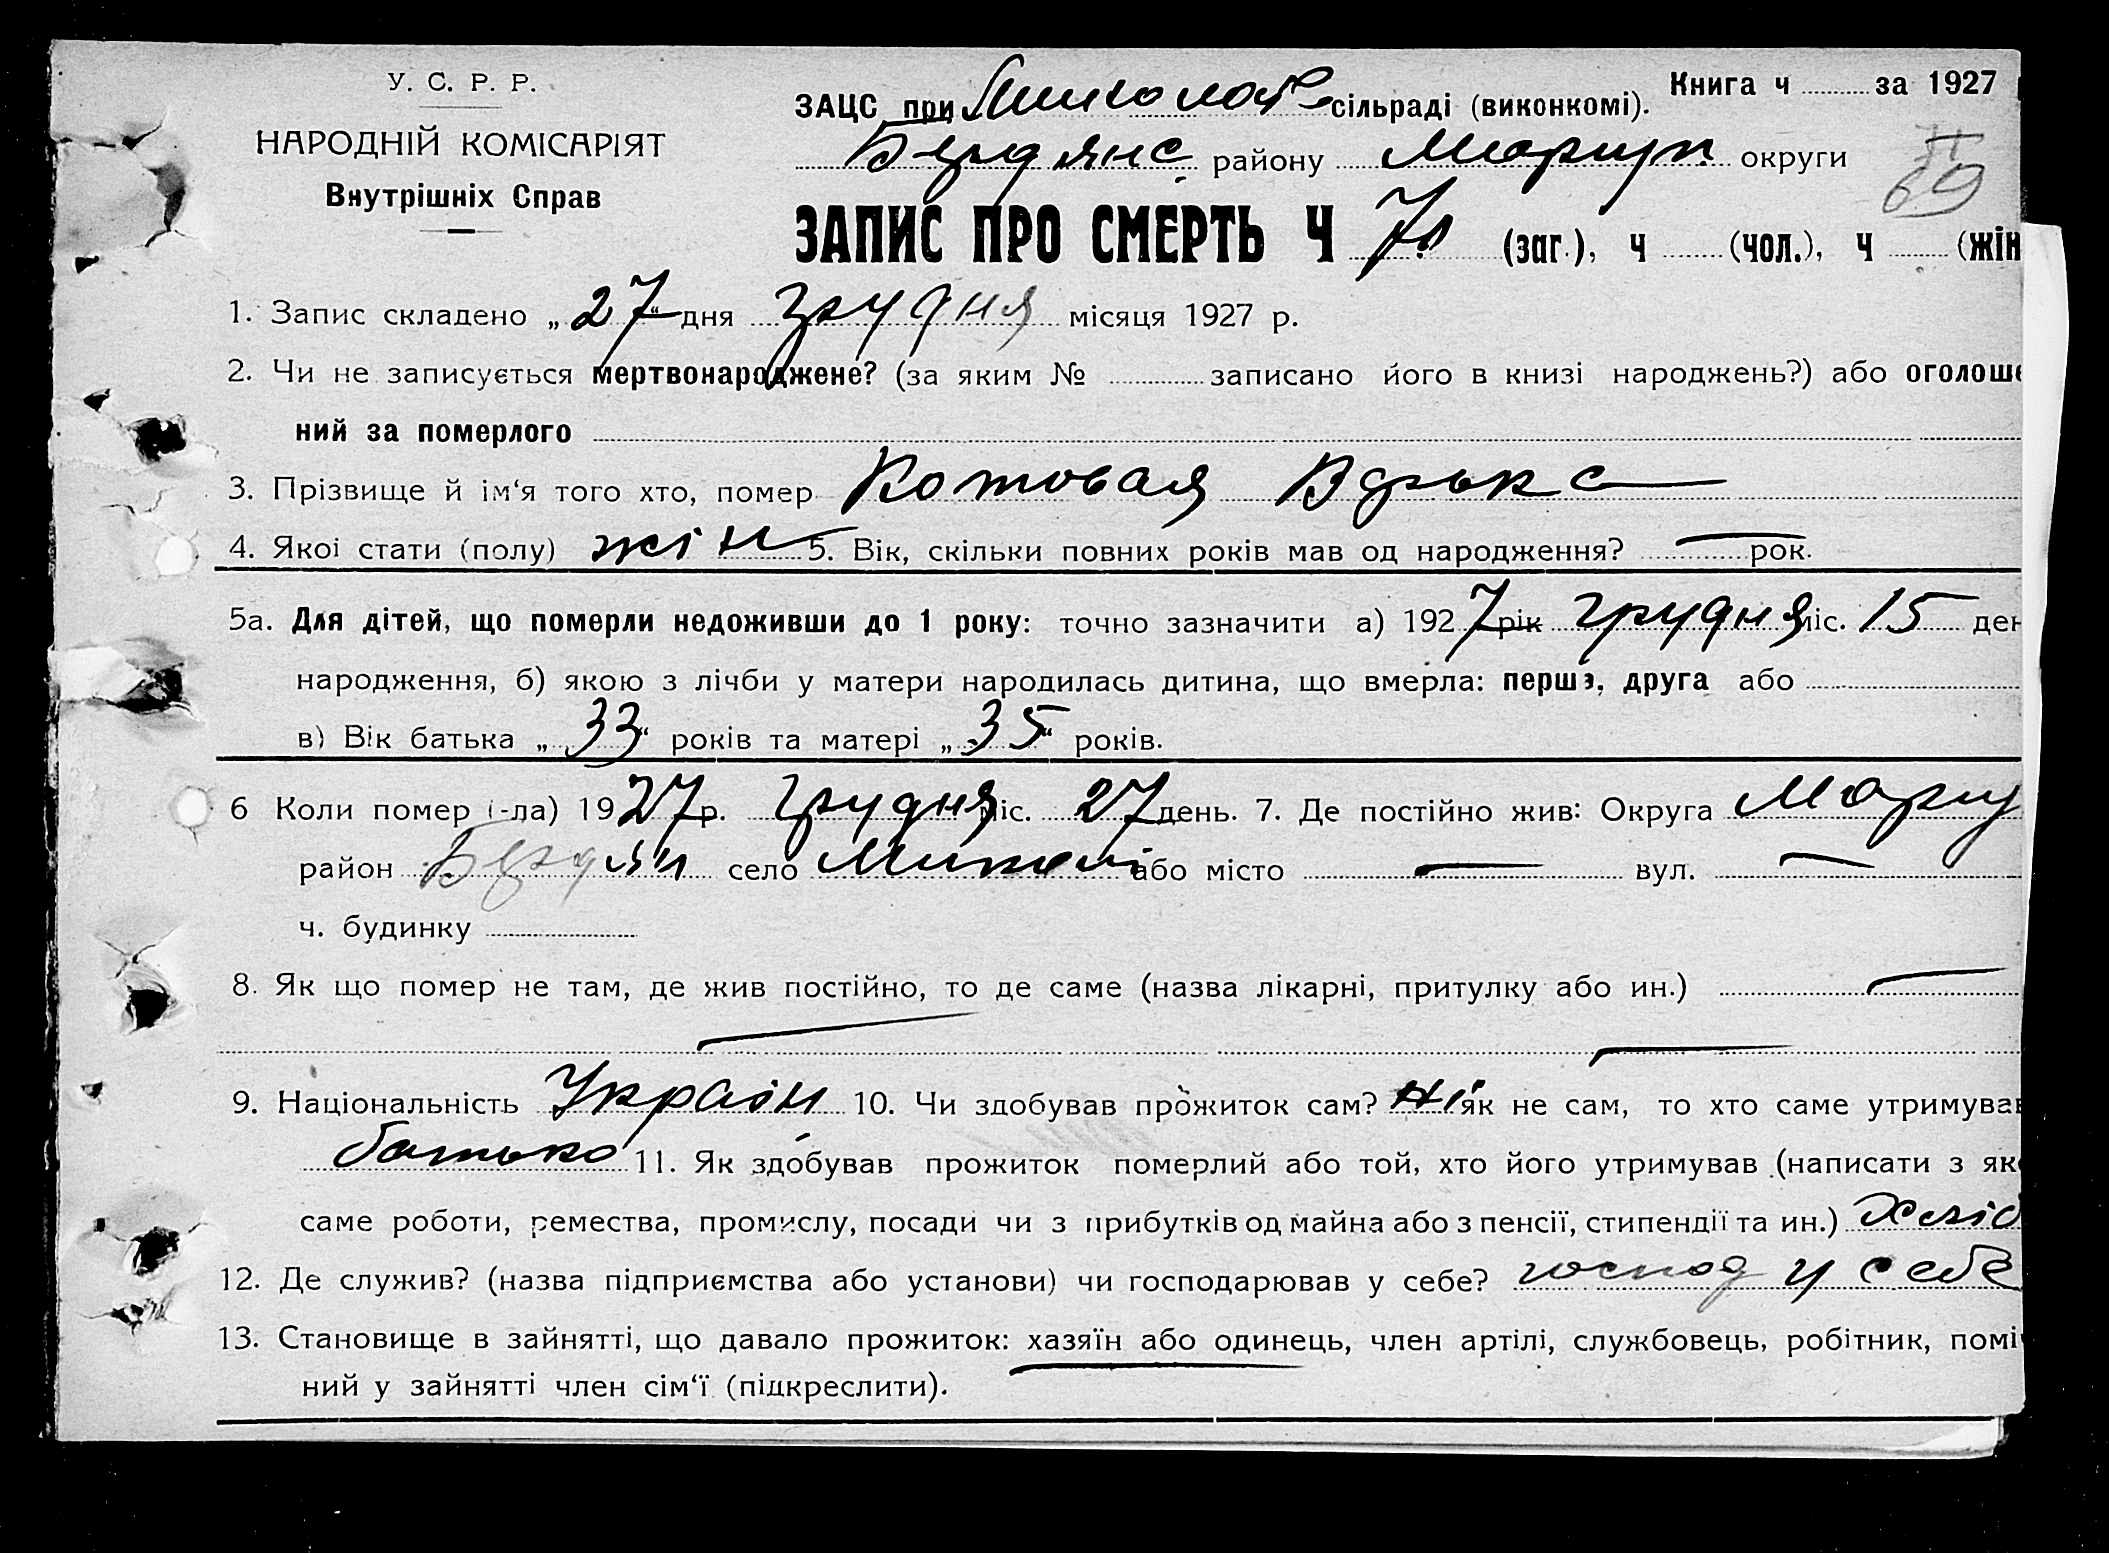 У. С. Р. Р.
НАРОДНІЙ КОМІСАРІЯТ
Внутрішніх Справ
Книга ч за 1927
ЗАЦС при сільраді (виконкомі).
Бердянс району Марцуп округи
69
ЗАПИС ПРО СМЕРТЬ Ч (заг.), ч (чол.), ч (жін
1. Запис складено „27" дня грудня місяця 1927 р.
2. Чи не записується мертвонароджене? (за яким № записано його в книзі народжень?) або оголоше
ний за померлого
3. Прізвище й ім'я того хто, помер Котовая
4. Якої стати (полу) жін 5. Вік, скільки повних років мав од народження? — рок.
5а. Для дітей, що померли недоживши до 1 року: точно зазначити а) 1927 рік грудня міс. 15 ден
народження, б) якою з лічби у матери народилась дитина, що вмерла: перша, друга або
в) Вік батька „33" років та матері „35" років.
6 Коли помер (-ла) 1927 р. грудня міс. 27 день. 7. Де постійно жив: Округа Мариу
район Бердян село або місто — вул. —
ч. будинку
8. Як що помер не там, де жив постійно, то де саме (назва лікарні, притулку або ин.) —
— —
9. Національність Україн 10. Чи здобував прожиток сам? Ні як не сам, то хто саме утримував
батько 11. Як здобував прожиток померлий або той, хто його утримував (написати з яко
саме роботи, ремества, промислу, посади чи з прибутків од майна або з пенсії, стипендії та ин.) Хліб
12. Де служив? (назва підприємства або установи) чи господарював у себе? господ у себе
13. Становище в зайнятті, що давало прожиток: хазяїн або одинець, член артілі, службовець, робітник, поміч
ний у зайнятті член сім'ї (підкреслити).